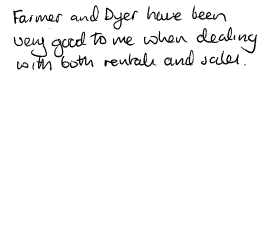 Farmer and Dyer have been
very good to me when dealing
with both rentals and sales.